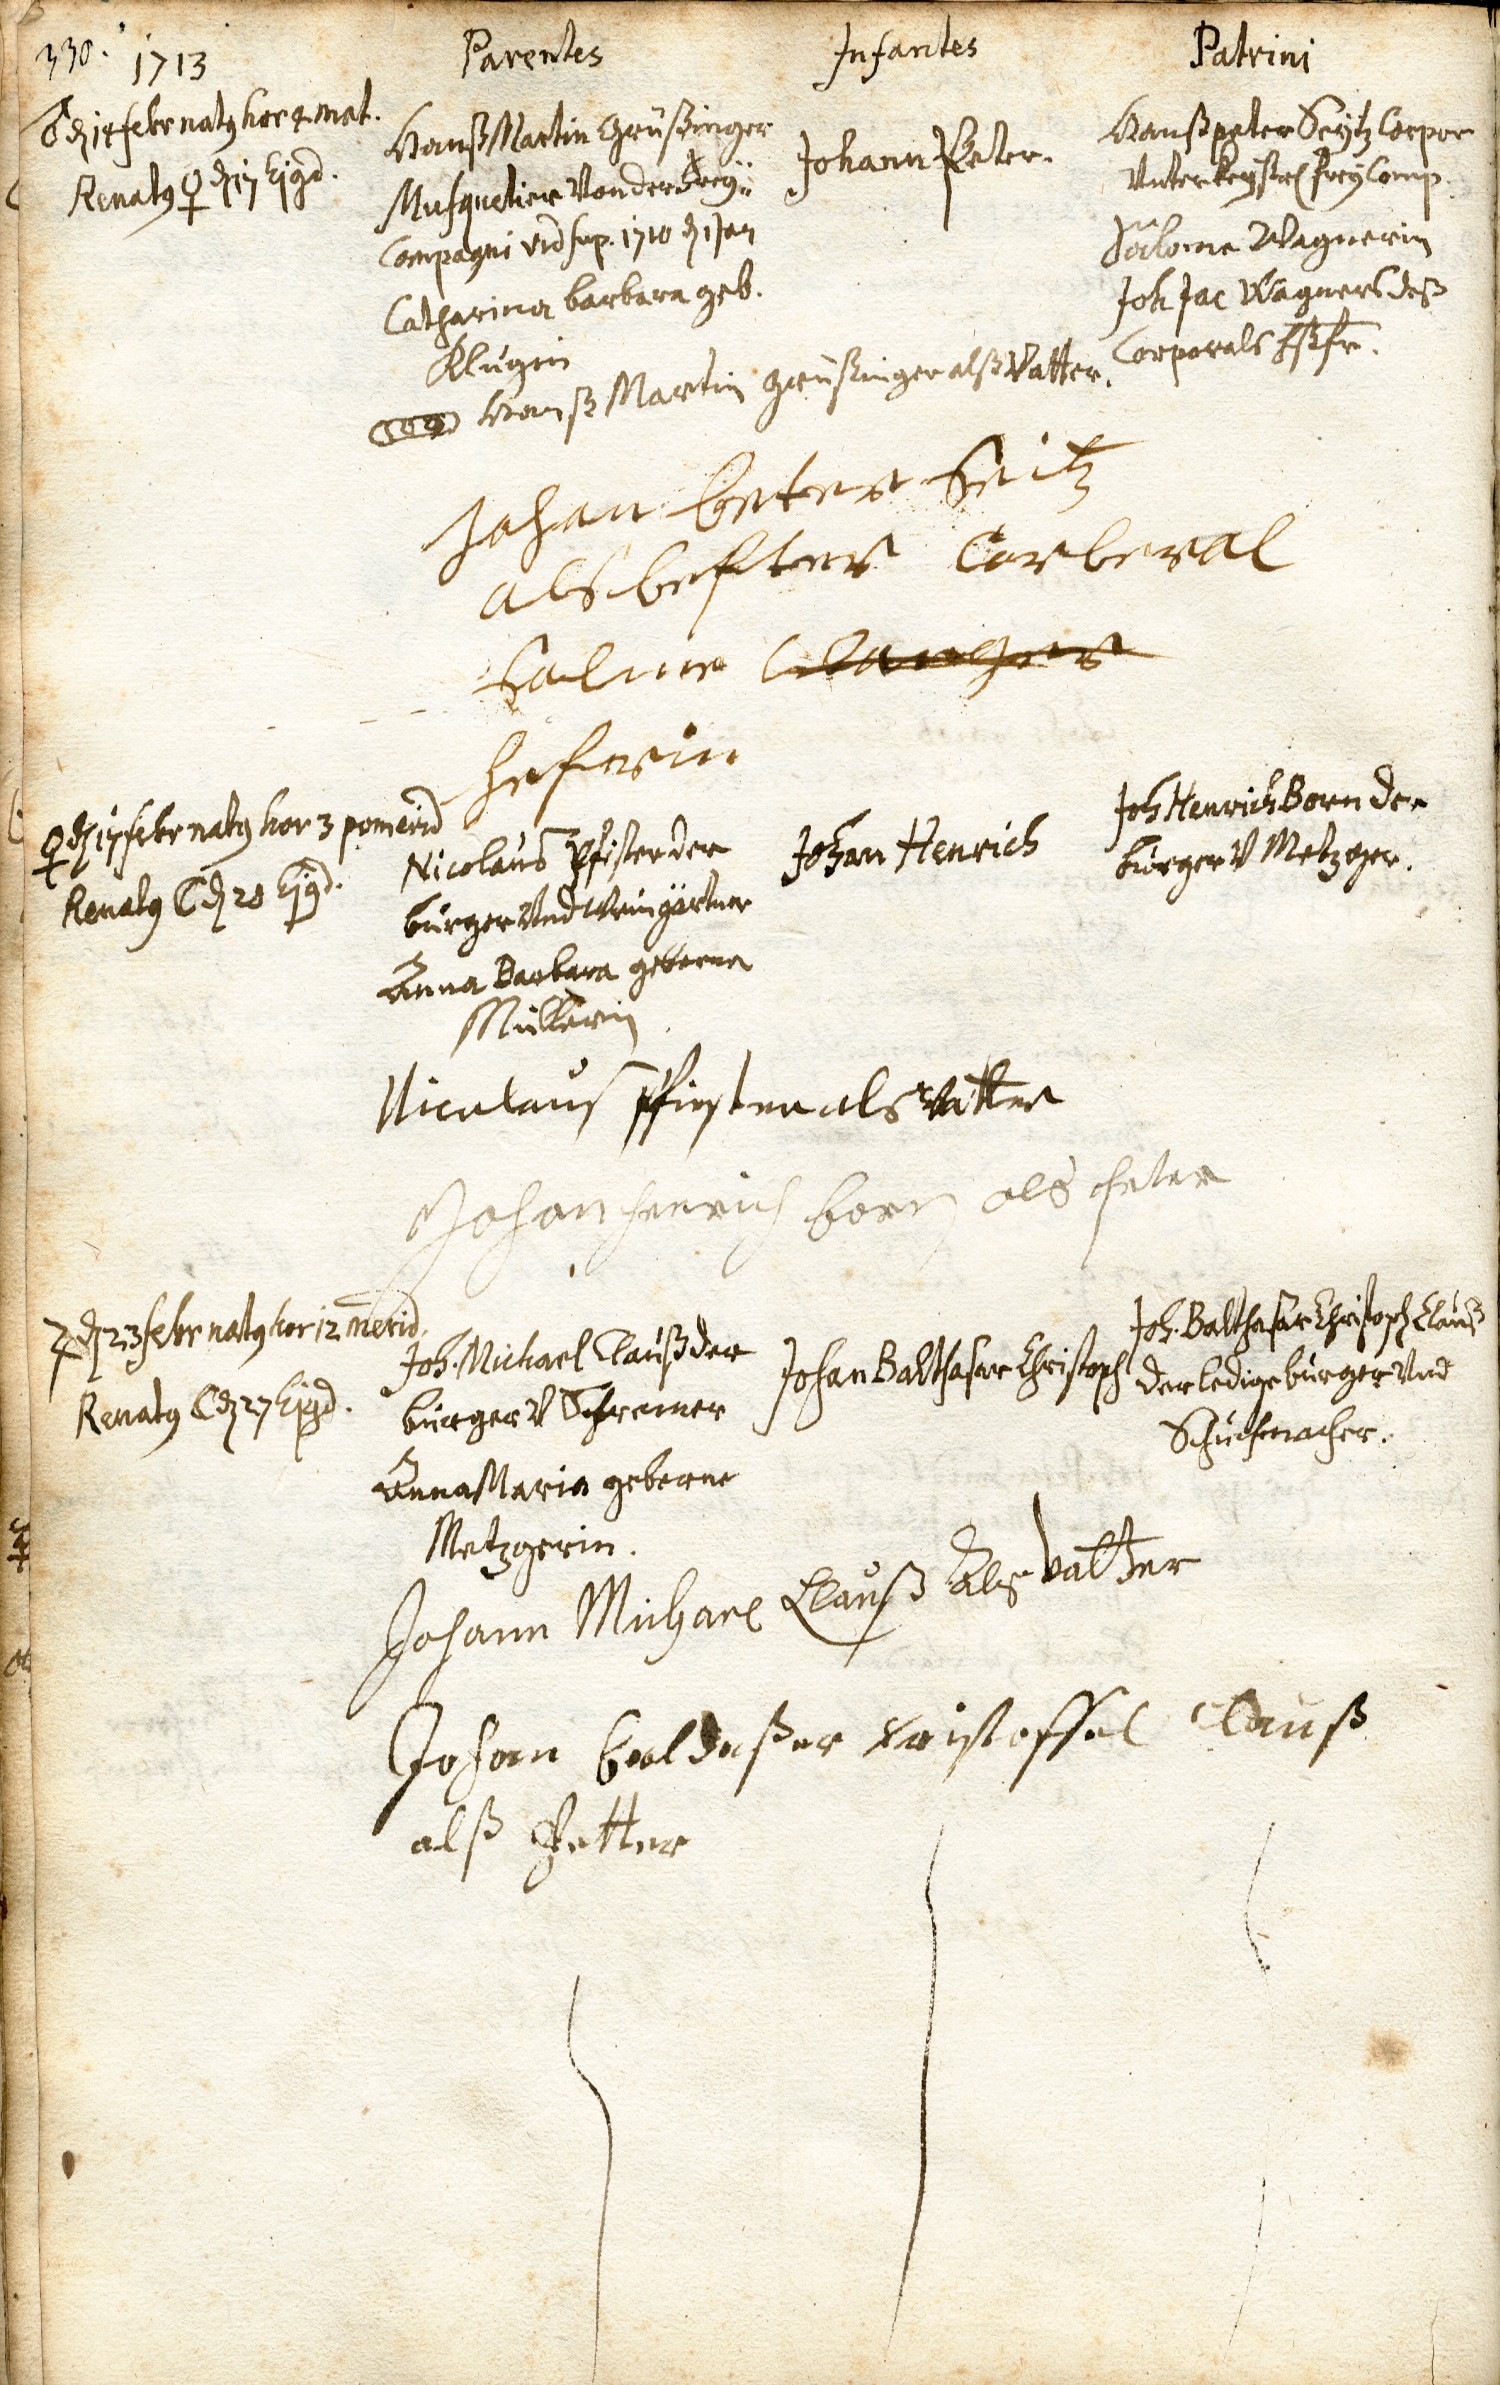 330. 1713 Parentes Infantes Patrini
♂ d 14 febr natq hor 4 mat.
Renatq ♀ d 17 Ejgd.
Hanß Martin Grüßinger
Musquetier Von der Frey
Compagni vid sup. 1710 d 1 Jan
Catharina barbara geb.
Klugin
Johann Peter.
Hanß peter Seytz Corpor
Unter keysel frey Comp.
Salome Wagnerin
Joh Jac Wagners deß
Corporals Hßfr.
Hanß Martin grüßinger alß Vatter.
Johan beter Seitz
als pfetter Corberal
Salme Wangner
♀ d 17 febr natq hor 3 pomerid
Renatq ☾ d 20 Ejgd.
Nicolaus Pfister der
burger Und Weingärtner
Anna Barbara geborne
Müllerin
Johan Henrich
Joh Henrich Born der
burger V Metzger.
Nicolaus Pfister als Vatter
Johan henrich born als pfeter
♃ d 23 febr natq hor 12 merid.
Renatq ☾ d 27 Ejgd.
Joh. Michael Clauß der
burger V Schreiner
Anna Maria geborne
Metzgerin.
Johan Balthasar Christoph
Joh. Balthasar Christoph Clauß
der ledige burger Und
Schuhmacher.
Johann Michael Clauß Als Vatter
Johan baldaßer kristoffel Clauß
alß Petter